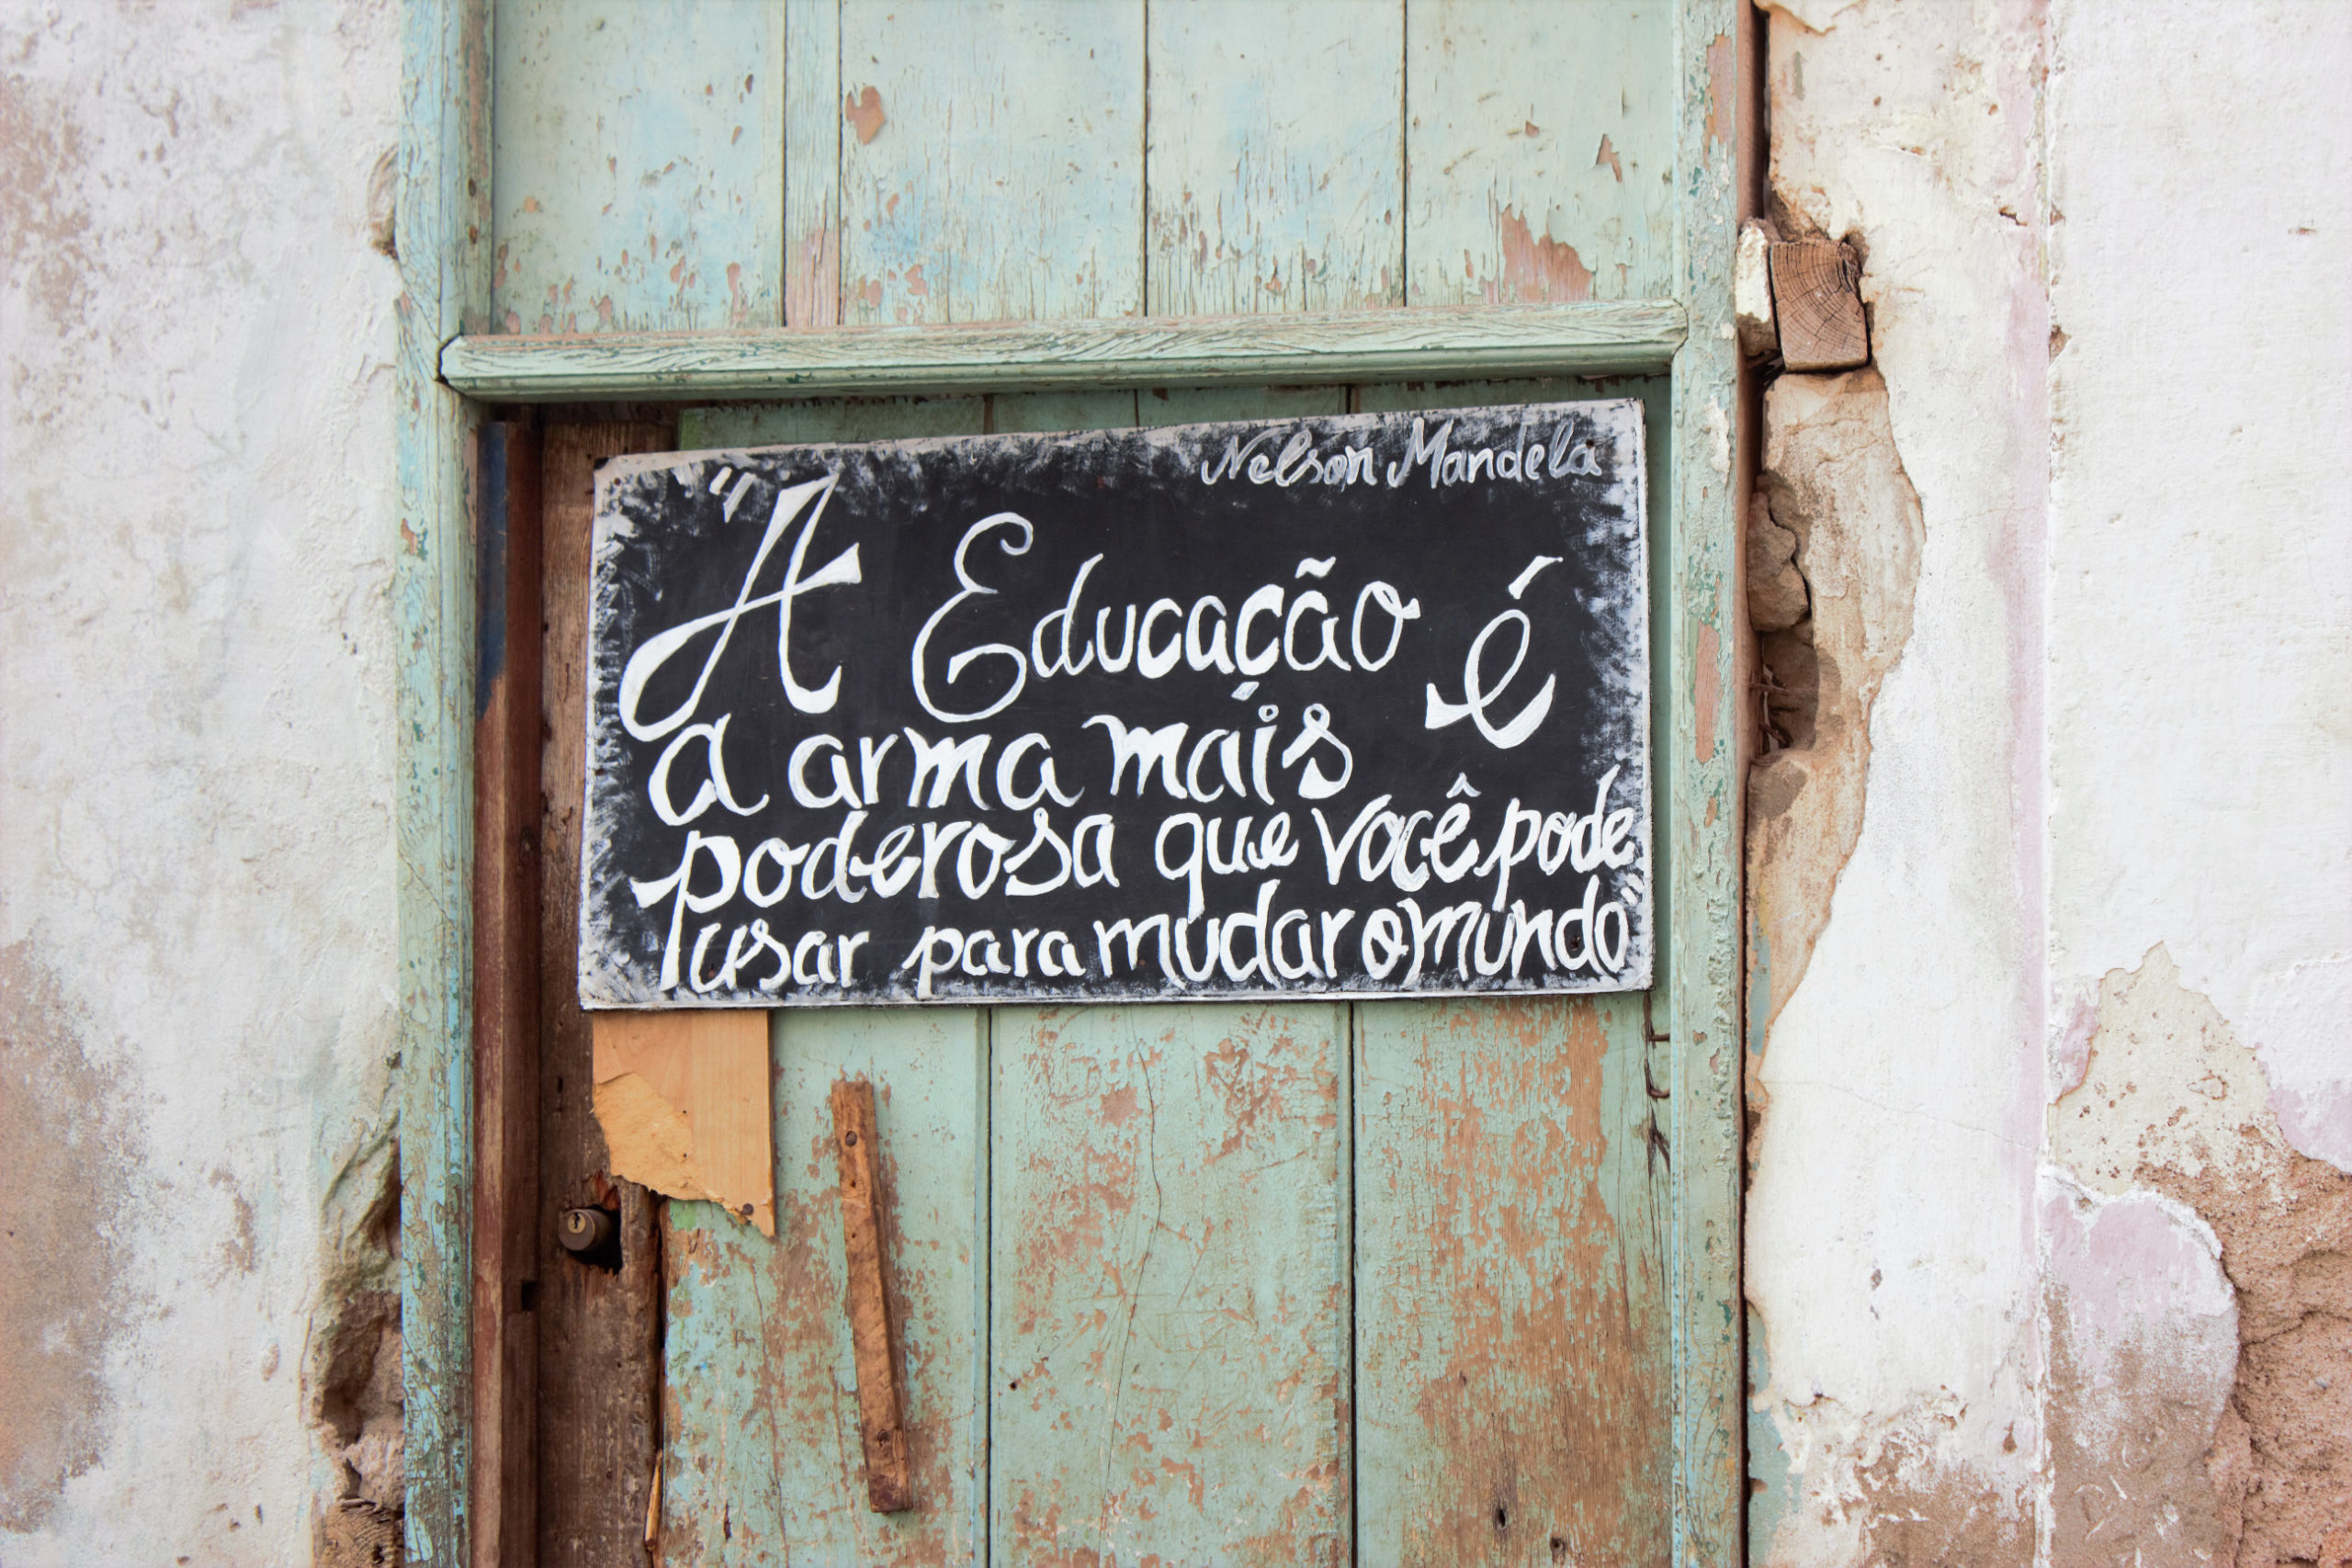 Nelson Mandela
"A Educação é
a arma mais
poderosa que você pode
usar para mudar o mundo"